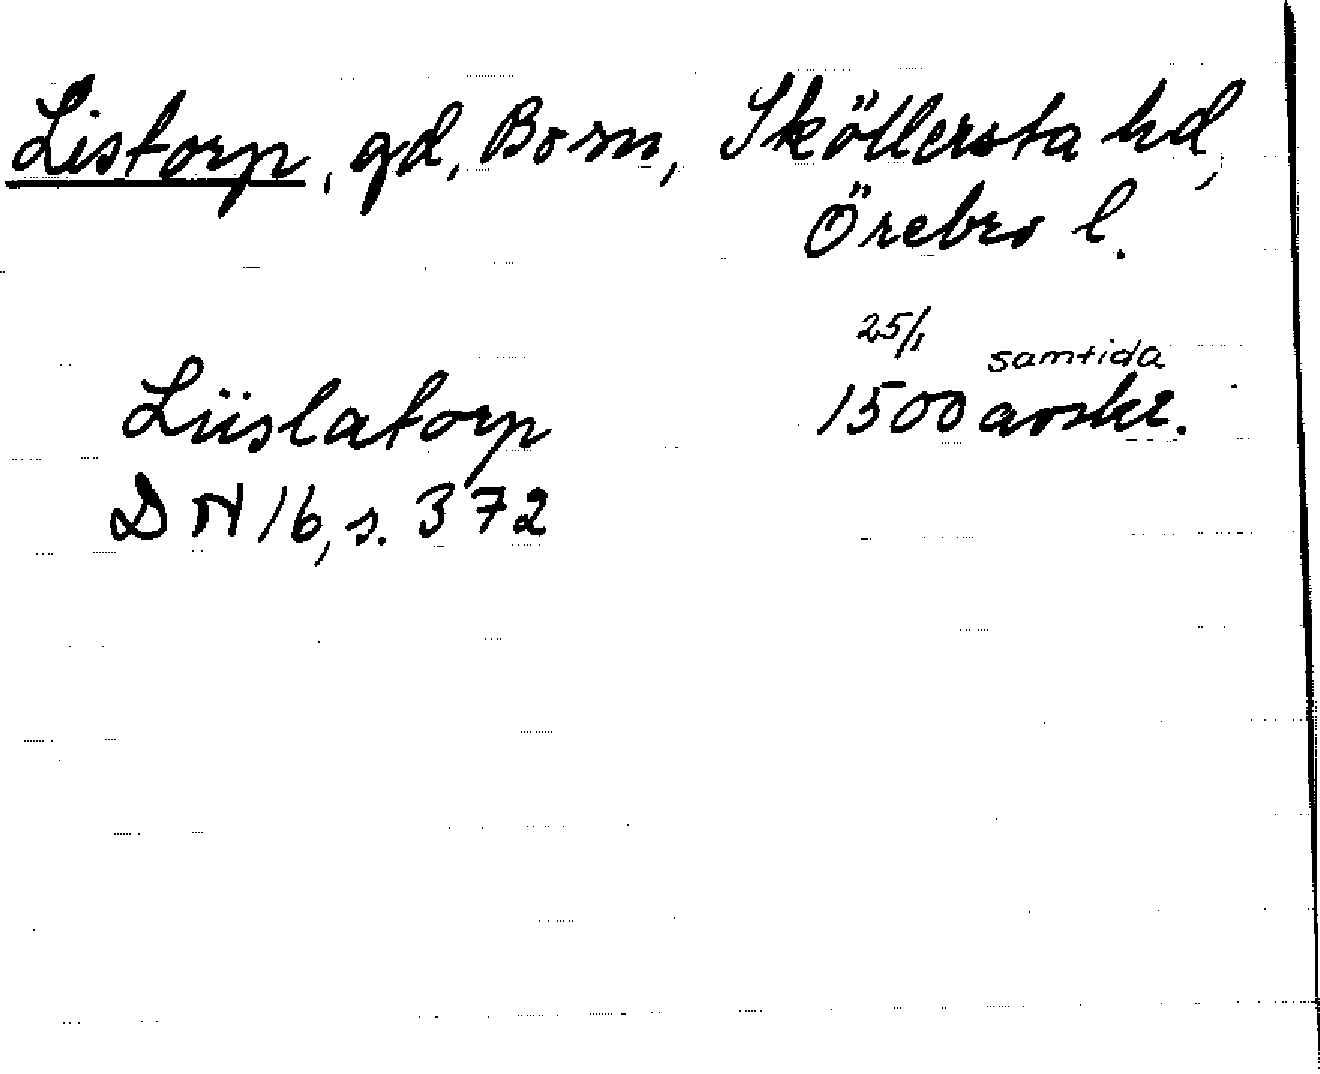 Listorp, gd, Bo sn, Sköllersta hd,
Örebro l.
25/1
samtida
Liislatorp 1500 avskr.
DN 16, s. 372